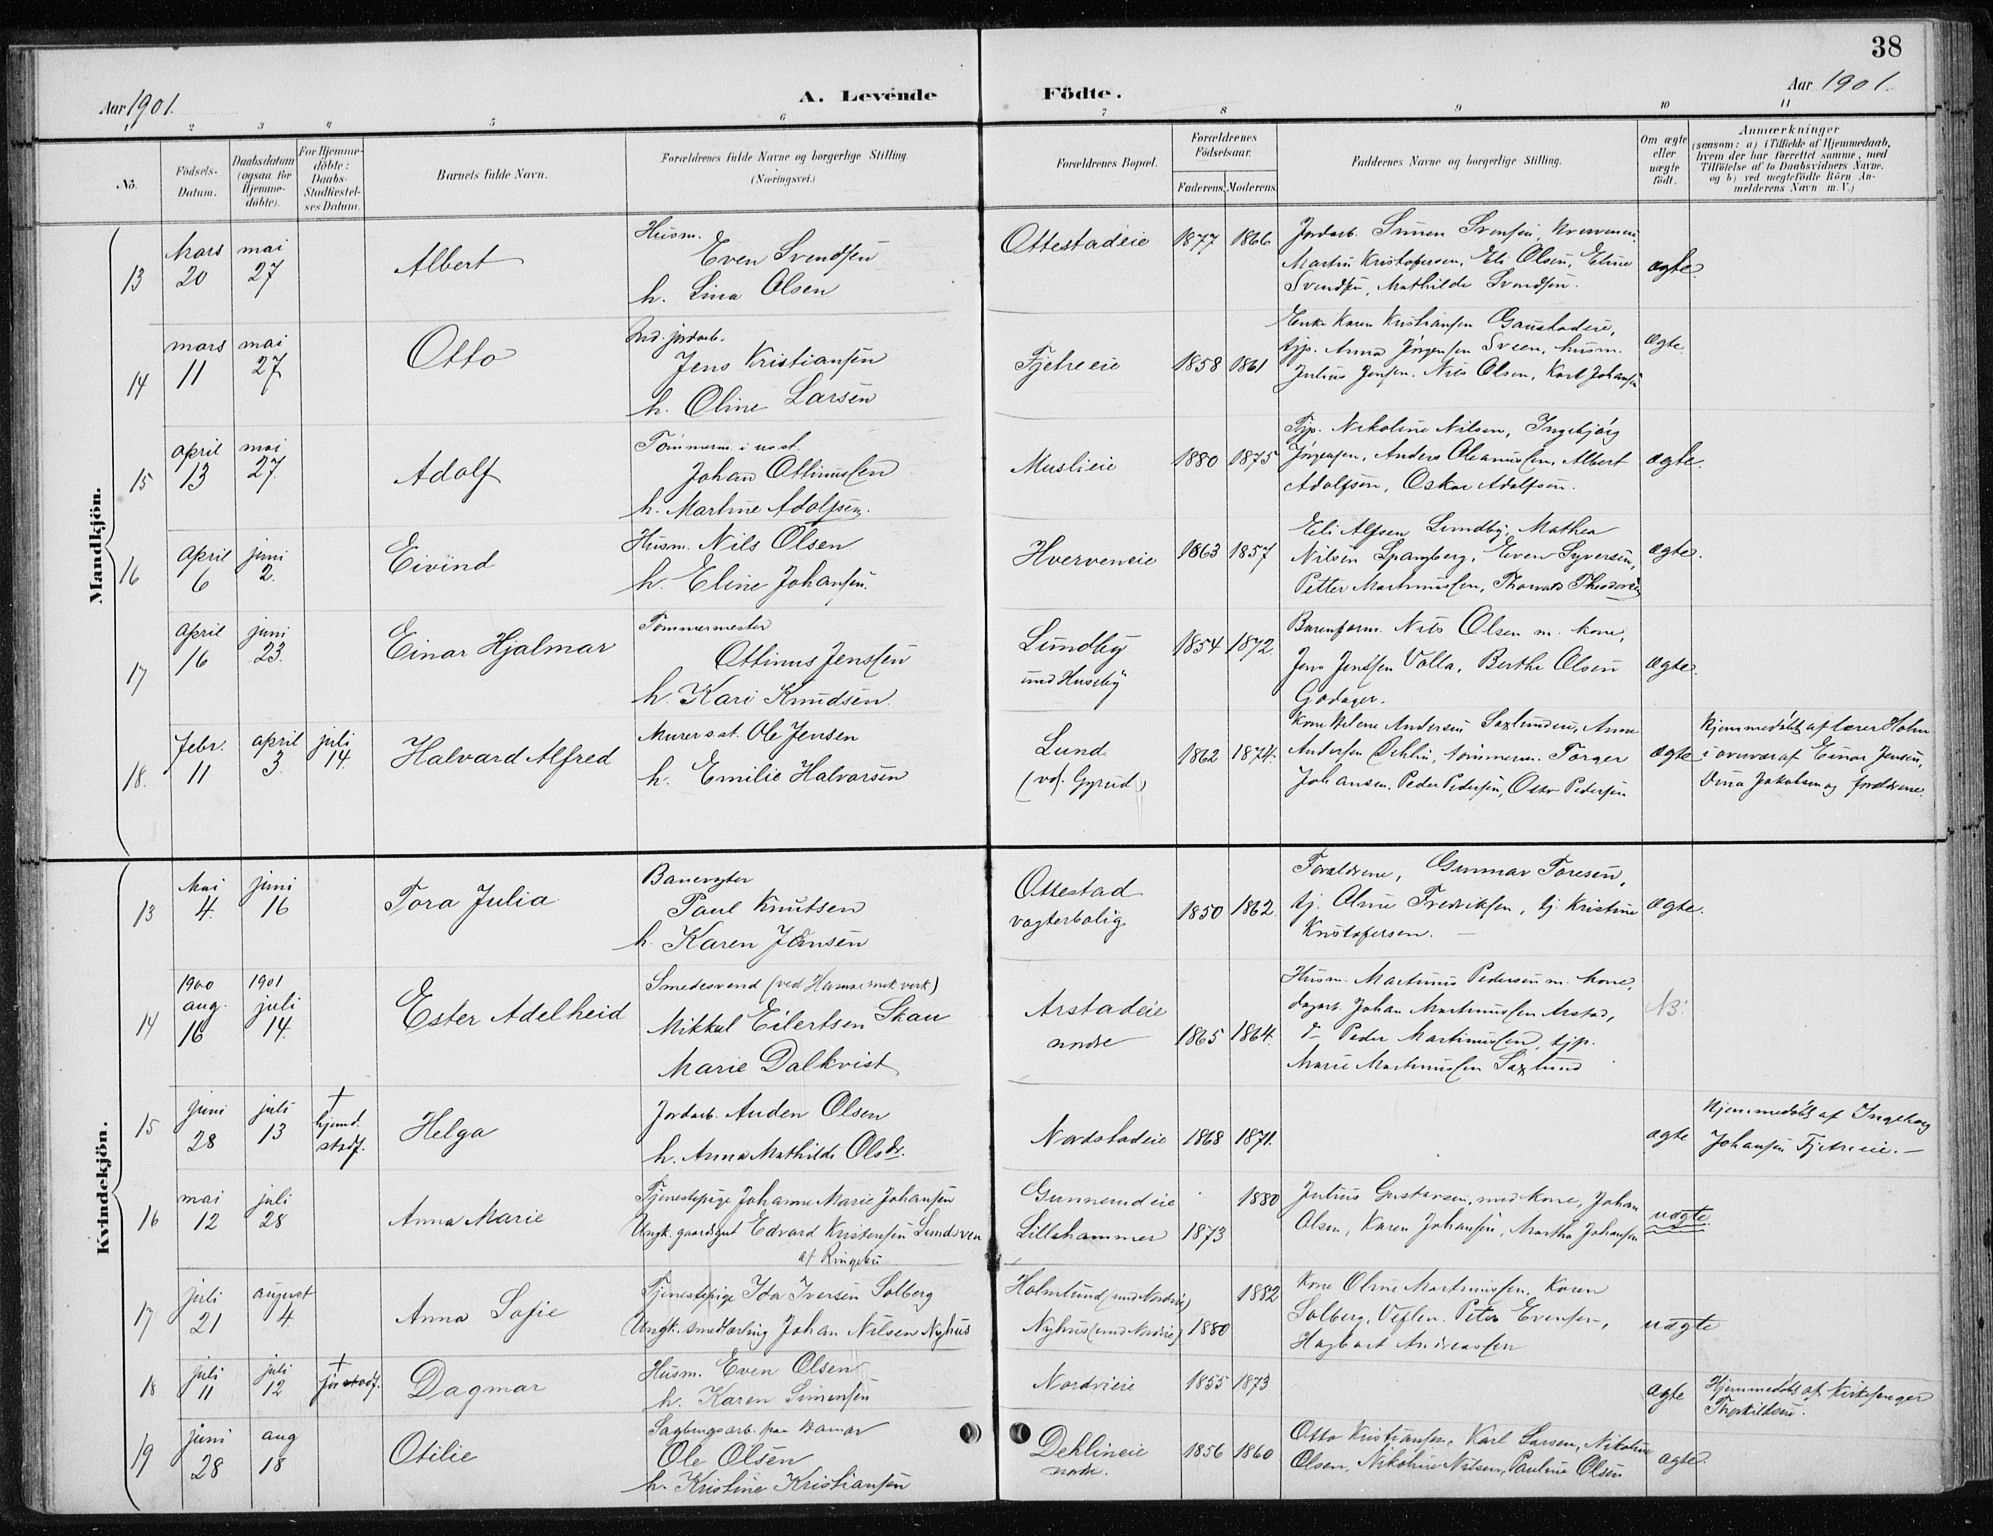 38
Aar 1901.
A. Levende Födte.
Aar 1901.
1 2 3 4 5 6 7 8 9 10 11
Nö.
Födsels-Datum.
Daabsdatum (ogsaa for Hjemmedöbte).
For Hjemmedöbte: Daabs-Stadfæstelses Datum.
Barnets fulde Navn.
Forældrenes fulde Navne og borgerlige Stilling. (Næringsvei.)
Forældrenes Bopæl.
Forældrenes Födselsaar.
Faderens. Moderens.
Faddernes Navne og borgerlige Stilling.
Om ægte eller uægte födt.
Anmærkninger
(saasom: a) i Tilfælde af Hjemmedaab, hvem der har forrettet samme, med Tilföielse af to Daabsvidners Navne, og b) ved uegtefödte Börn Anmelderens Navn m. V.)
Mandkjön.
13 Mars 20 mai 27 Albert
Husm. Even Svendsen
h. Lina Olsen
Ottestadeie 1877 1866
Jordarb. Simen Svensen,
Martin Kristofersen, Eli Olsen, Eline
Svendsen, Mathilde Svendsen.
ægte.
14 mars 11 mai 27 Otto
Ind. jordarb. Jens Kristiansen
h. Oline Larsen
Fjetreeie 1858 1861
Enke Karen Kristiansen Gaustadeie,
tjp. Anna Jörgensen Sveen, husm.
Julius Jensen, Nils Olsen, Karl Johansen
ægte.
15 april 13 mai 27. Adolf
Tømmerm. i
Johan Ottinussen
h. Martine Adolfsen.
Muslieie 1880 1875
Tjp. Nikoline Nilsen, Ingebjörg
Jörgensen, Anders Oleanussen, Albert
Adolfsen, Oskar Adolfsen.
ægte.
16 april 6 juni 2. Eivind
Husm. Nils Olsen
h. Eline Johansen.
Hverveneie 1863 1857
Eli Alfsen Lundby, Mathea
Nilsen Spangberg, Even Syversen,
Petter Martinussen, Thorvald
ægte.
17 april 16 juni 23. Einar Hjalmar
Tømmermester
Ottinus Jenssen
h. Kari Knudsen.
Lundby
und Huseby
1854 1872.
Baneform. Nils Olsen m. kone,
Jens Jenssen Volla, Berthe Olsen
Godager.
ægte.
18. Febr. 11 april 3. juli 14. Halvard Alfred
Murer Ole Jensen
h. Emilie Halvorsen
Lund
1862 1874.
Kone Helene Andersen Saxlundeie, Anne
Andersen Dehlin, tømmerm. Torger
Johansen, Peder Pedersen, Otto Pedersen
ægte
Hjemmedøbt af lærer Holm
i overvær af Einar Jensen,
Dina Jakobsen og forældrene.
Kvindekjön.
13 Mai 4. juni 16 Tora Julia
Banevogter
Paul Knutsen
h. Karen Jensen
Ottestad
vogterbolig
1850 1862.
Forældrene, Gunnar Toresen,
tj. Oline Fredriksen, tj. Kristine
Kristofersen. –
ægte.
14 1900 aug. 16 1901 juli 14. Ester Adelheid
Smedesvend (ved Hamar mek verk)
Mikkel Eilertsen Skau
Marie Dalkvist
Arstadeie
nordre
1865 1864.
Husm. Martinus Pedersen m. kone,
dagarb. Johan Martinussen Arstad,
Peder Martinussen, tjp.
Marie Martinussen Saxlund
NB!
15 juni 28 juli 13 † hjemd. stadf. Helga
Jordarb. Auden Olsen
h. Anna Mathilde Olsdr.
Nordstadeie 1868 1871.
ægte
Hjemmedøbt af Ingeborg
Johansen Fjetreeie. –
16 mai 12 juli 28 Anna Marie
Tjenestepige Johanne Marie Johansen
Ungk. gaardgut Edvard Kristensen
af Ringebu
Gunnerudeie 1880
Lillehammer 1873
Julius Gustavsen, med kone, Johan
Olsen, Karen Johansen, Martha Johansen
uægte.
17 juli 21 august 4. Anna Sofie
Tjenestepige Ida Iversen Solberg
Ungk. smedlærling Johan Nilsen Nyhus
Holmlund (und Nordvi) 1882
Nyhus (und Nordvi) 1880
Kone Oline Martinussen, Karen
Solberg, Peter Evensen,
Hagbart Andreassen
uægte
18 juli 11 juli 12 † Dagmar
Husm. Even Olsen
h. Karen Simensen
Nordvieie 1855 1873
ægte
Hjemmedøbt af kirkesanger
Thorkildsen.
19 juni 28 aug 18 Otilie
Sagbrugsarb. paa Hamar
Ole Olsen
h. Kristine Kristiansen
Dehlineie
nordre.
1856 1860
Otto Kristiansen, Karl Larsen, Nikoline
Olsen, Nikoline Nilsen, Pauline Olsen
ægte.